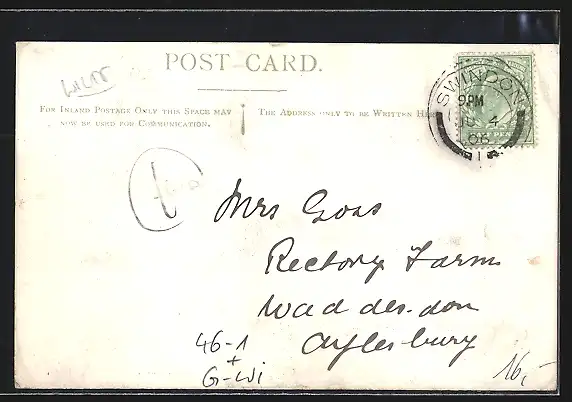 POST CARD.
FOR INLAND POSTAGE ONLY THIS SPACE MAY
NOW BE USED FOR COMMUNICATION.
THE ADDRESS ONLY TO BE WRITTEN HERE
SWINDON
9 PM
4
06
1
Mrs Goss
Rectory Farm
Waddesdon
Aylesbury
46-1
+
G-Wi
16,-